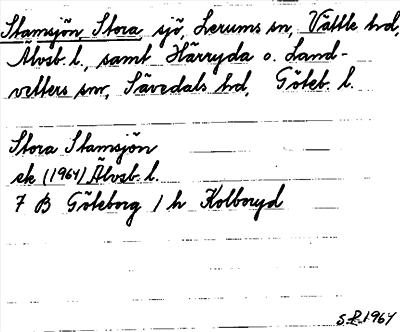 Stamsjön, Stora, sjö, Lerums sn, Vättle hd,
Älvsb. l., samt Härryda o. Land-
vetters snr, Sävedals hd, Göteb. l.
Stora Stamsjön
ek (1964) Älvsb. l.
7 B Göteborg 1 h Kolboryd
S.P. 1967